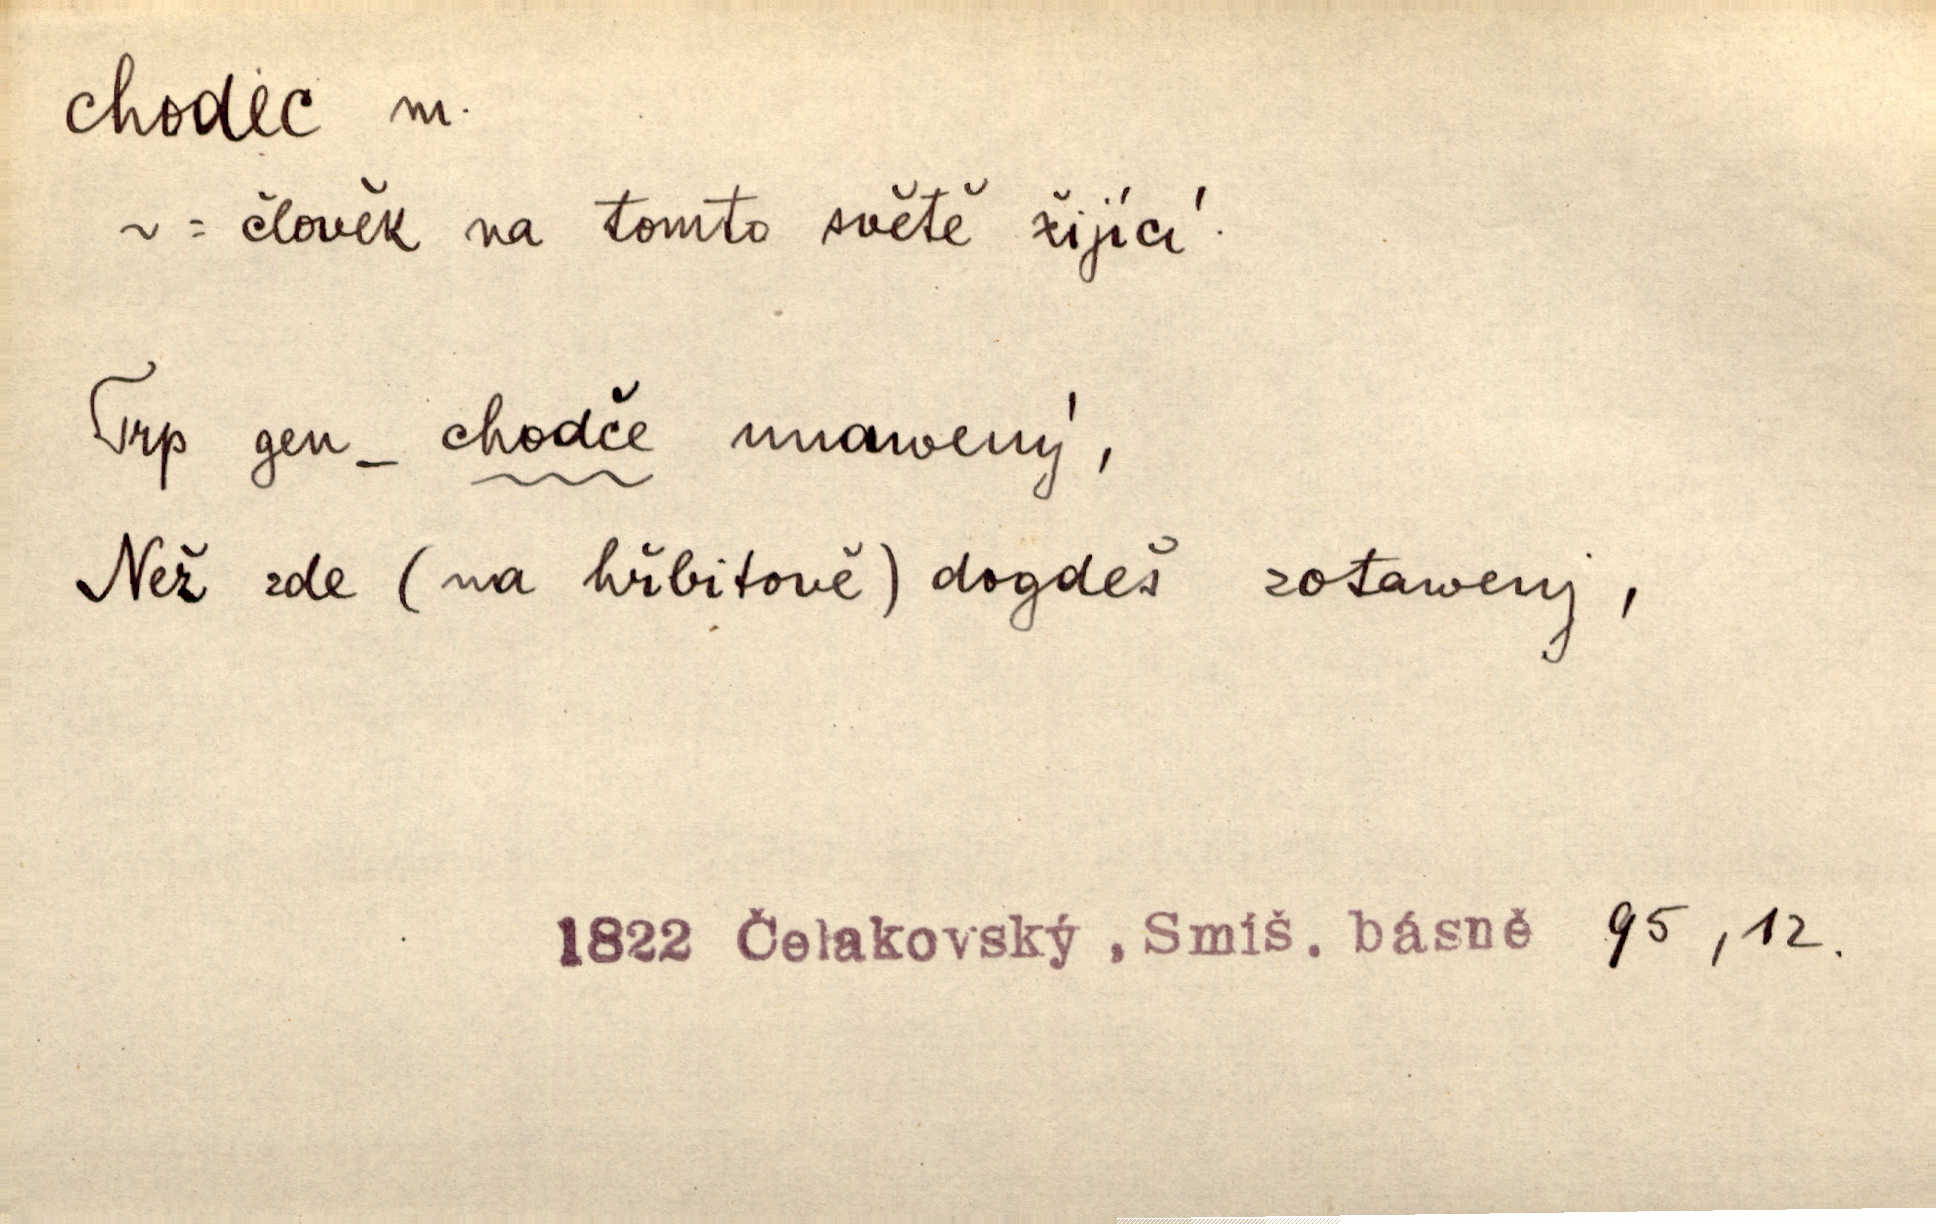 chodec m.
~ = člověk na tomto světě žijící.
Trp gen _ chodče unawený,
Než zde (na hřbitově) dogdeš zotawenj,
1822 Čelakovský, Smíš. básně 95, 12.